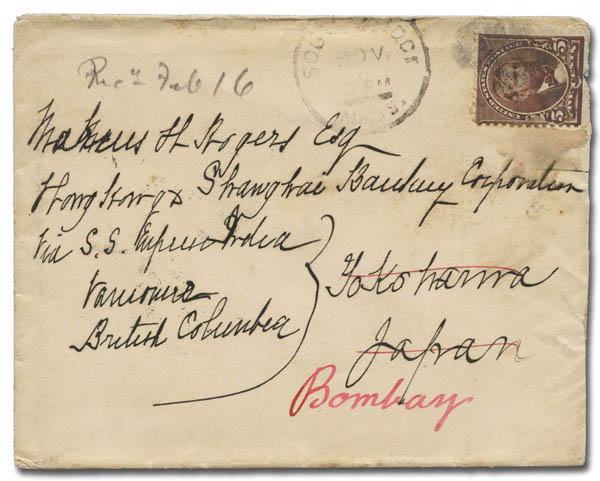 Rec'd Feb 16
NOV
5
5
H Rogers Esq
Hong Kong & Shanghai Banking Corporation
Via S.S. Empress India
Vancouver
British Columbia
Yokohama
Japan
Bombay